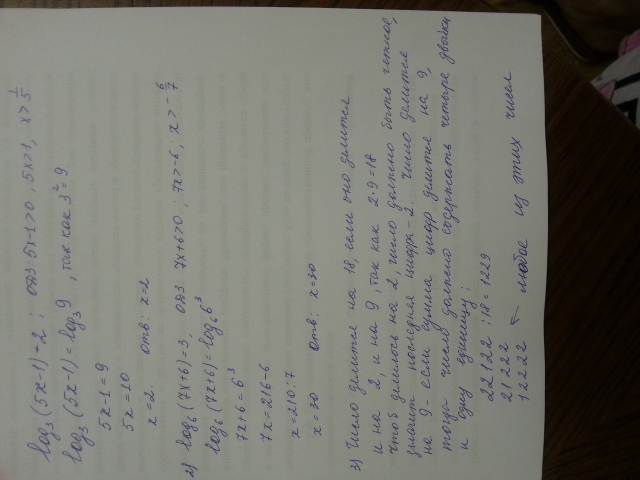 log₃(5x-1)=2 ; одз: 5x-1>0; 5x>1, x>1/5
log₃(5x-1)=log₃9, так как 3²=9
5x-1=9
5x=10
x=2. отв: x=2
2) log₆(7x+6)=3, одз 7x+6>0; 7x>-6, x>-6/7
log₆(7x+6)=log₆6³
7x+6=6³
7x=216-6
x=210:7
x=30 отв: x=30
3) Число делится на 18, если оно делится
и на 2, и на 9, так как 2·9=18
чтоб делилось на 2, число должно быть четное,
значит последняя цифра-2. Число делится
на 9- если сумма цифр делится на 9,
тогда число должно содержать четыре двойки
и одну единицу:
22122 :18=1229
21222
12222 ← любое из этих чисел